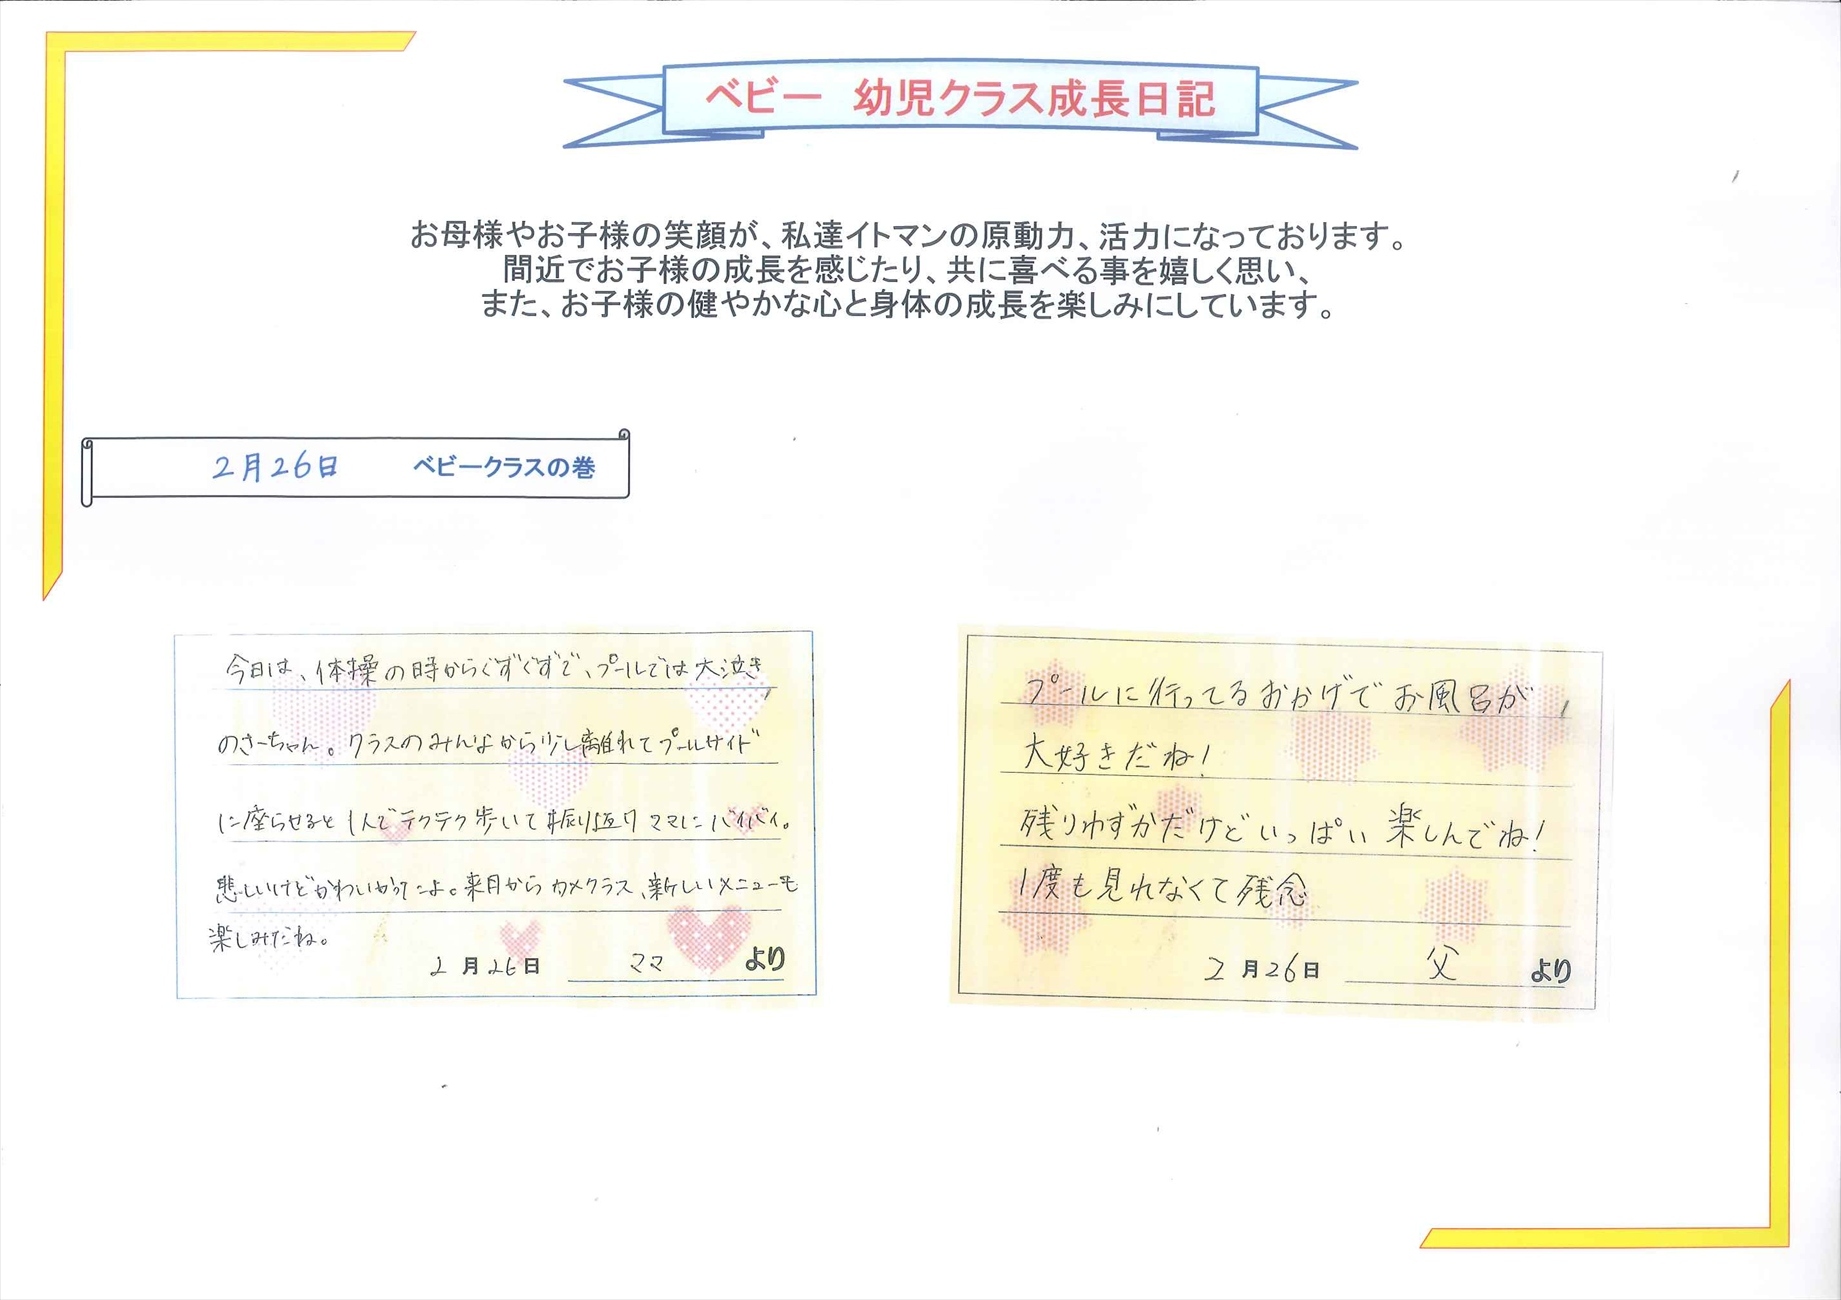 ベビー 幼児クラス成長日記
お母様やお子様の笑顔が、私達イトマンの原動力、活力になっております。
間近でお子様の成長を感じたり、共に喜べる事を嬉しく思い、
また、お子様の健やかな心と身体の成長を楽しみにしています。
2月26日 ベビークラスの巻
今日は、体操の時からぐずぐずで、プールでは大泣き
のさーちゃん。クラスのみんなから少し離れてプールサイド
に座らせると1人でテクテク歩いて振り返りママにバイバイ。
悲しいけどかわいかったよ。来月からカメクラス、新しいメニューも
楽しみだね。
2月26日 ママ より
プールに行ってるおかげでお風呂が
大好きだね!
残りわずかだけどいっぱい楽しんでね!
1度も見れなくて残念
2月26日 父 より